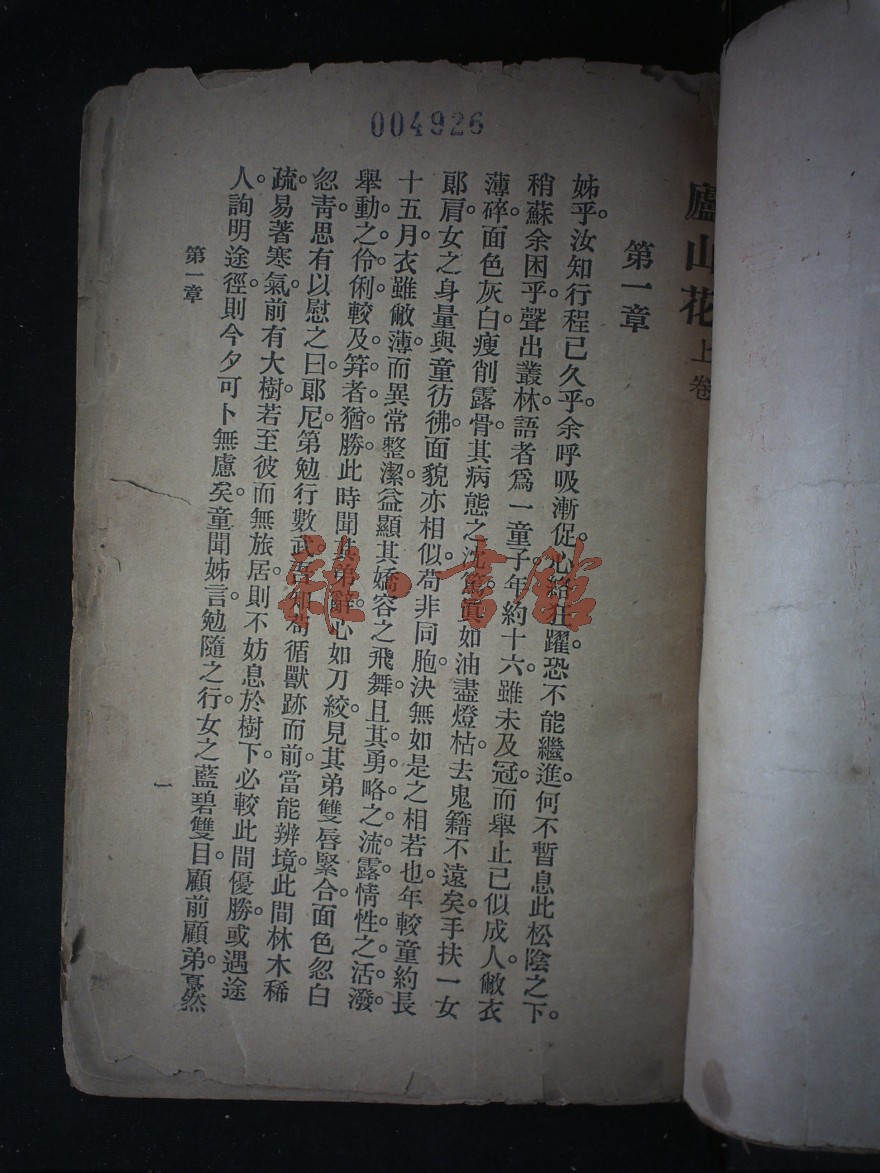 004926
廬山花 上卷
第一章
姊乎。汝知行程已久乎。余呼吸漸促。心絡狂躍。恐不能繼進。何不暫息此松陰之下。
稍蘇余困乎。聲出叢林。語者爲一童子。年約十六。雖未及冠。而舉止已似成人。敝衣
薄碎。面色灰白。瘦削露骨。其病態之沈篤。眞如油盡燈枯。去鬼籍不遠矣。手扶一女
郞肩。女之身量與童彷彿。面貌亦相似。苟非同胞。決無如是之相若也。年較童約長
十五月。衣雖敝薄。而異常整潔。益顯其嬌容之飛舞。且其勇略之流露。情性之活潑。
舉動之伶俐。較及笄者猶勝。此時聞其弟辭。心如刀絞。見其弟雙唇緊合。面色忽白
忽青。思有以慰之。曰。郞尼第勉行數武。吾知苟循獸跡而前。當能辨境。此間林木稀
疏。易著寒氣。前有大樹。若至彼而無旅居。則不妨息於樹下。必較此間優勝。或遇途
人。詢明途徑。則今夕可卜無慮矣。童聞姊言。勉隨之行。女之藍碧雙目。顧前顧弟。戛然
第一章
一
雜·書館